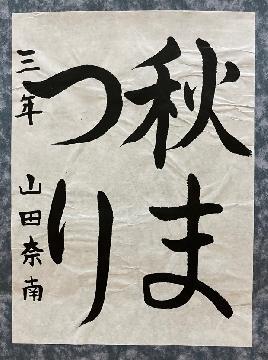 秋ま
つり
三年 山田奈南